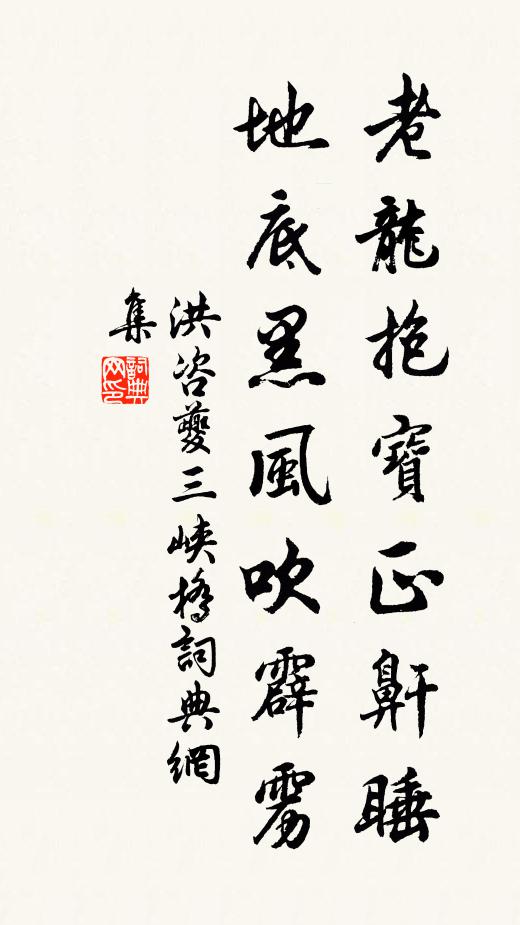 老龍抱寶正鼾睡
地底黑風吹霹雳
洪咨夔三峽橋詞典網
集
詞典
网印